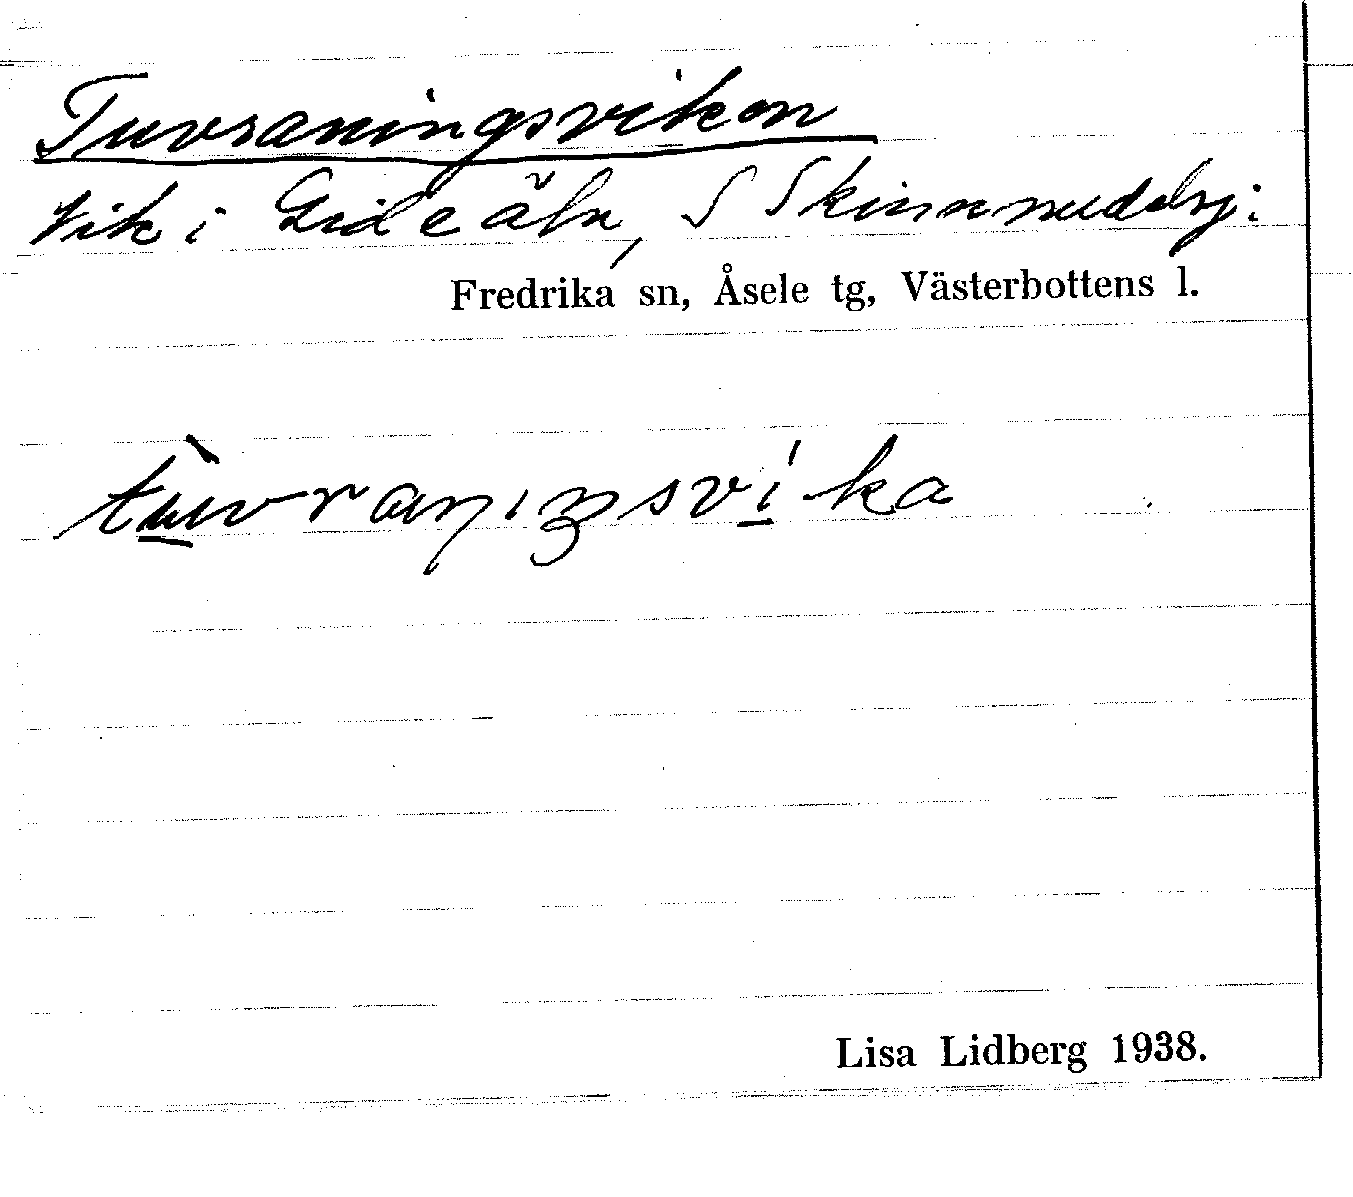 Tuvraningsviken
Vik i Gideälv, S Skinnmuddsj.
Fredrika sn, Åsele tg, Västerbottens l.
tùvranıŋsvika
Lisa Lidberg 1938.